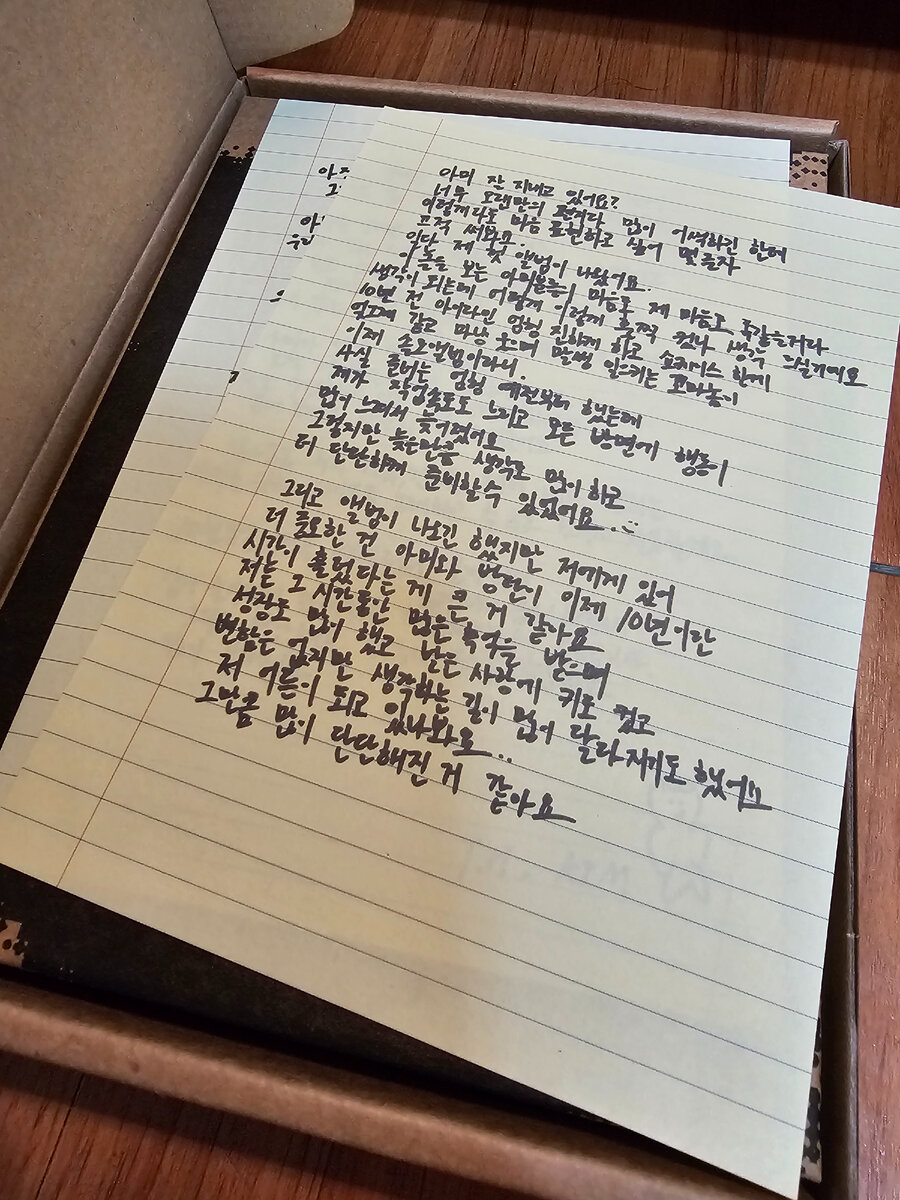 아미 잘 지내고 있어요?
너무 오랜만의 편지라 많이 어색하긴 한데
이렇게라도 마음 표현하고 싶어 몇 글자
끄적 써봐요.
일단 제 첫 앨범이 나왔어요.
이 글을 보는 아미분들의 마음도 제 마음도 똑같을거라
생각이 되는데 어떻게 이렇게 훌쩍 컸나 생각 드실거에요
10년 전 아이라인 엄청 진하게 하고 소세지 한개
앞뒤에 감고 마냥 웃으며 말썽 일으키는 꼬마놈이
이제 솔로앨범이라니.
사실 준비는 엄청 예전부터 했는데
제가 작업속도도 느리고 모든 방면에 행동이
많이 느려서 늦어졌어요
그렇지만 늦은만큼 생각도 많이 하고
더 단단하게 준비할수 있었어요.
그리고 앨범이 나오긴 했지만 저에게 있어
더 중요한 건 아미와 방탄이 이제 10년이란
시간이 흘렀다는 게 큰 거 같아요
저는 그 시간동안 많은 추억을 받으며
성장도 많이 했고 받은 사랑에 키도 컸고
변함은 없지만 생각하는 길이 많이 달라지기도 했어요
저 어른이 되고 있나봐요..
그만큼 많이 단단해진 거 같아요